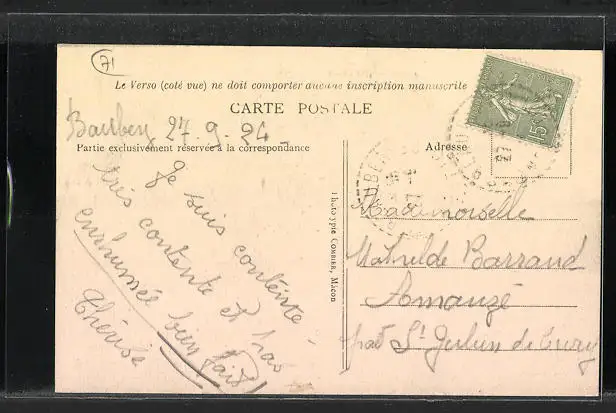 71
Le Verso (coté vue) ne doit comporter aucune inscription manuscrite
CARTE POSTALE
Baubery 27-9-24
Partie exclusivement réservée à la correspondance
Adresse
Je suis contente
très contente et pas
enrhumée bien fait
Thérèse
Phototypie COMBIER, Macon
Mademoiselle
Mathilde Barraud
Amanzé
par St Julien de Civry
15